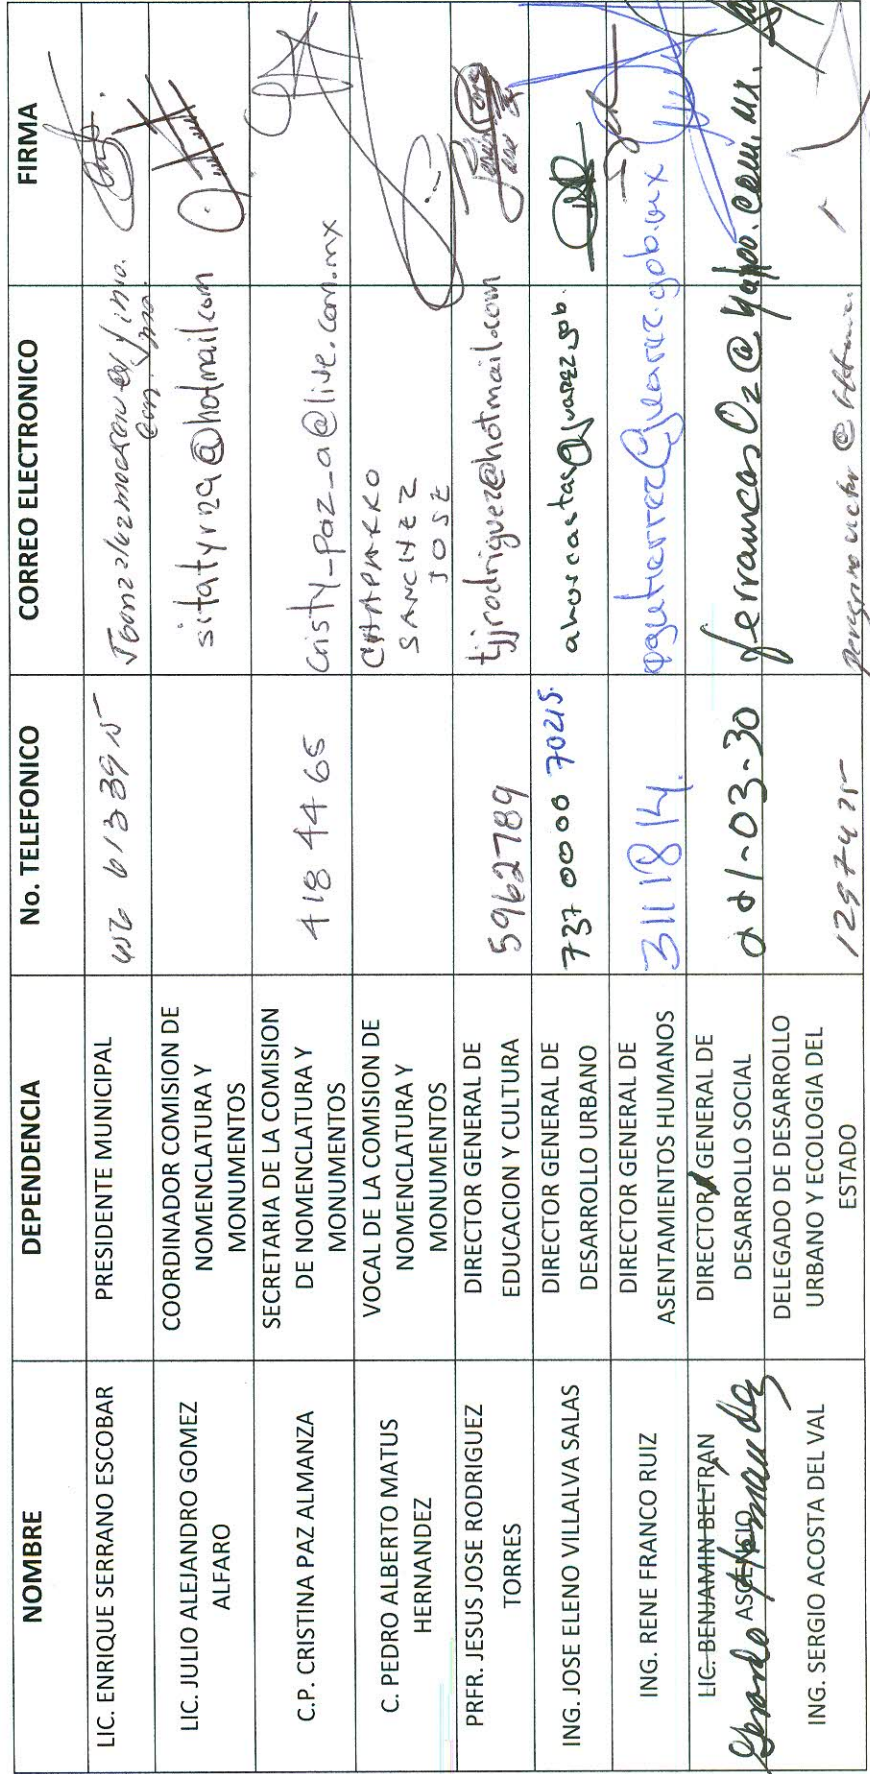 NOMBRE DEPENDENCIA No. TELEFONICO CORREO ELECTRONICO FIRMA
LIC. ENRIQUE SERRANO ESCOBAR PRESIDENTE MUNICIPAL
LIC. JULIO ALEJANDRO GOMEZ
ALFARO
COORDINADOR COMISION DE
NOMENCLATURA Y
MONUMENTOS
sitatyr29@hotmail.com
C.P. CRISTINA PAZ ALMANZA
SECRETARIA DE LA COMISION
DE NOMENCLATURA Y
MONUMENTOS
418 44 65
cristy_paz_a@live.com.mx
C. PEDRO ALBERTO MATUS
HERNANDEZ
VOCAL DE LA COMISION DE
NOMENCLATURA Y
MONUMENTOS
CHAPARRO
SANCHEZ
JOSE
PRFR. JESUS JOSE RODRIGUEZ
TORRES
DIRECTOR GENERAL DE
EDUCACION Y CULTURA
5962789
tjjrodriguez@hotmail.com
ING. JOSE ELENO VILLALVA SALAS
DIRECTOR GENERAL DE
DESARROLLO URBANO
737 0000 70215.
ING. RENE FRANCO RUIZ
DIRECTOR GENERAL DE
ASENTAMIENTOS HUMANOS
311 18 14.
LIC. BENJAMIN BELTRAN
ASCENCIO
Gerardo Hernandez
DIRECTOR GENERAL DE
DESARROLLO SOCIAL
ING. SERGIO ACOSTA DEL VAL
DELEGADO DE DESARROLLO
URBANO Y ECOLOGIA DEL
ESTADO